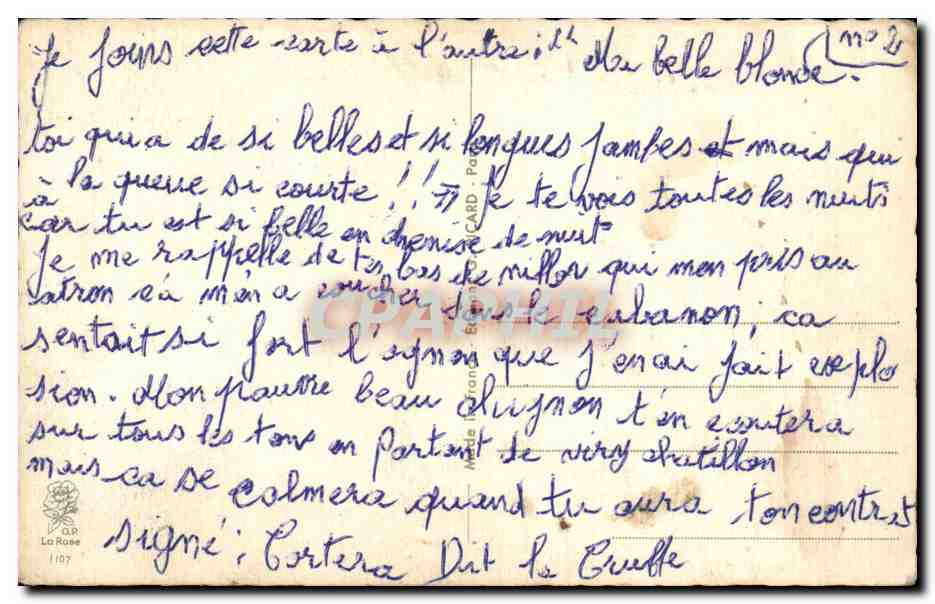 Je joins cette carte à l'autre : Ma belle blonde. n° 2
toi qui a de si belles et si longues jambes et mais qui
à la queue si courte !! Je te vois toutes les nuits
car tu est si belle en chemise de nuit
Je me rappelle de bas de qui mon pris au
ça m'en a coucher dans le cabanon, ca
sentait si fort l'ognon que j'enai fait explo
sion. Mon pauvre beau chignon t'en ecoutera
sur tous les tons en partant de viry chatillon
mais ca se calmera quand tu aura ton contrat
signé : Cortera Dit la Truffe
Made in France - Editions PICARD - Paris
O.P.
La Rose
1107
CPAPHIL